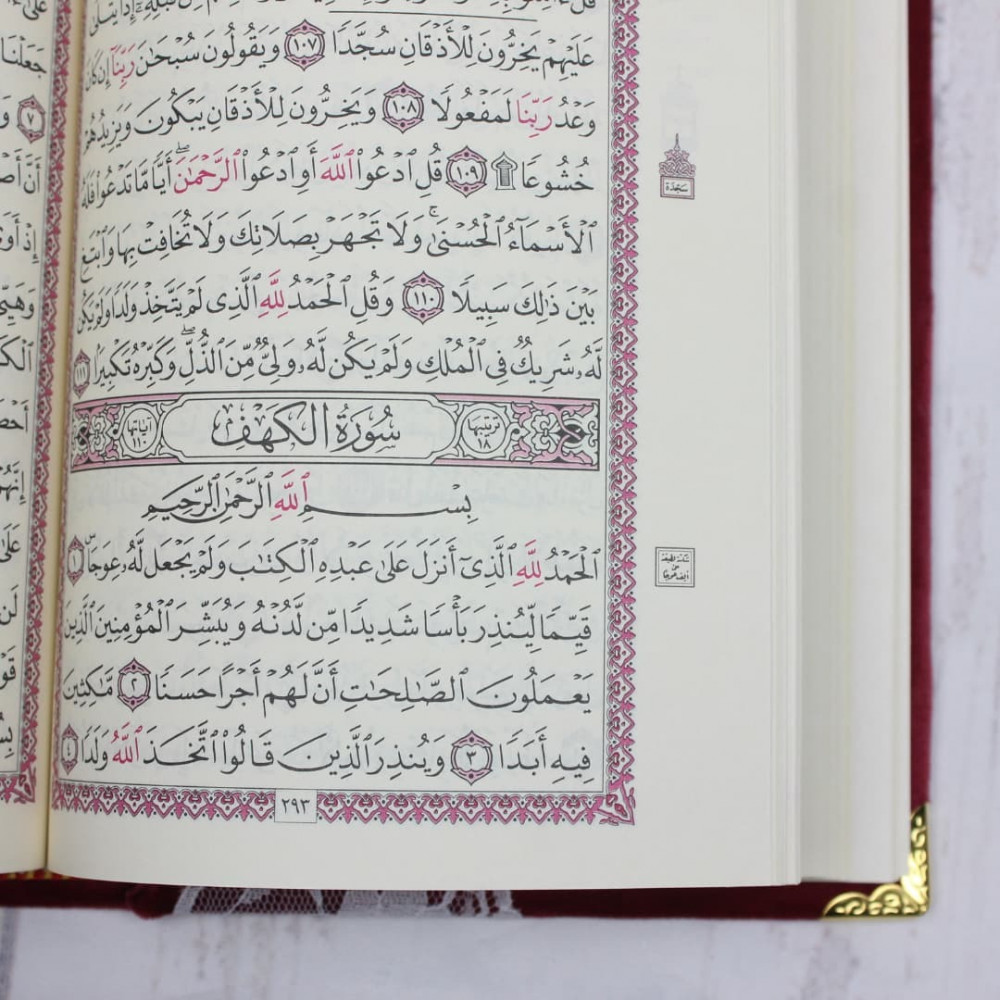 عَلَيْهِمْ يَخِرُّونَ لِلْأَذْقَانِ سُجَّدًا ١٠٧ وَيَقُولُونَ سُبْحَٰنَ رَبِّنَآ إِن كَانَ
وَعْدُ رَبِّنَا لَمَفْعُولًا ١٠٨ وَيَخِرُّونَ لِلْأَذْقَانِ يَبْكُونَ وَيَزِيدُهُمْ
خُشُوعًا ۩ ١٠٩ قُلِ ٱدْعُوا۟ ٱللَّهَ أَوِ ٱدْعُوا۟ ٱلرَّحْمَٰنَ ۖ أَيًّا مَّا تَدْعُوا۟ فَلَهُ
ٱلْأَسْمَآءُ ٱلْحُسْنَىٰ ۚ وَلَا تَجْهَرْ بِصَلَاتِكَ وَلَا تُخَافِتْ بِهَا وَٱبْتَغِ
بَيْنَ ذَٰلِكَ سَبِيلًا ١١٠ وَقُلِ ٱلْحَمْدُ لِلَّهِ ٱلَّذِى لَمْ يَتَّخِذْ وَلَدًا وَلَمْ يَكُن
لَّهُۥ شَرِيكٌ فِى ٱلْمُلْكِ وَلَمْ يَكُن لَّهُۥ وَلِىٌّ مِّنَ ٱلذُّلِّ ۖ وَكَبِّرْهُ تَكْبِيرًۢا ١١١
ترتيبها ١٨ سُورَةُ الكَهْفِ آياتها ١١٠
بِسْمِ ٱللَّهِ ٱلرَّحْمَٰنِ ٱلرَّحِيمِ
ٱلْحَمْدُ لِلَّهِ ٱلَّذِىٓ أَنزَلَ عَلَىٰ عَبْدِهِ ٱلْكِتَٰبَ وَلَمْ يَجْعَل لَّهُۥ عِوَجَاۜ ١
قَيِّمًا لِّيُنذِرَ بَأْسًا شَدِيدًا مِّن لَّدُنْهُ وَيُبَشِّرَ ٱلْمُؤْمِنِينَ ٱلَّذِينَ
يَعْمَلُونَ ٱلصَّٰلِحَٰتِ أَنَّ لَهُمْ أَجْرًا حَسَنًا ٢ مَّٰكِثِينَ
فِيهِ أَبَدًا ٣ وَيُنذِرَ ٱلَّذِينَ قَالُوا۟ ٱتَّخَذَ ٱللَّهُ وَلَدًا ٤
٢٩٣
سَجْدَة